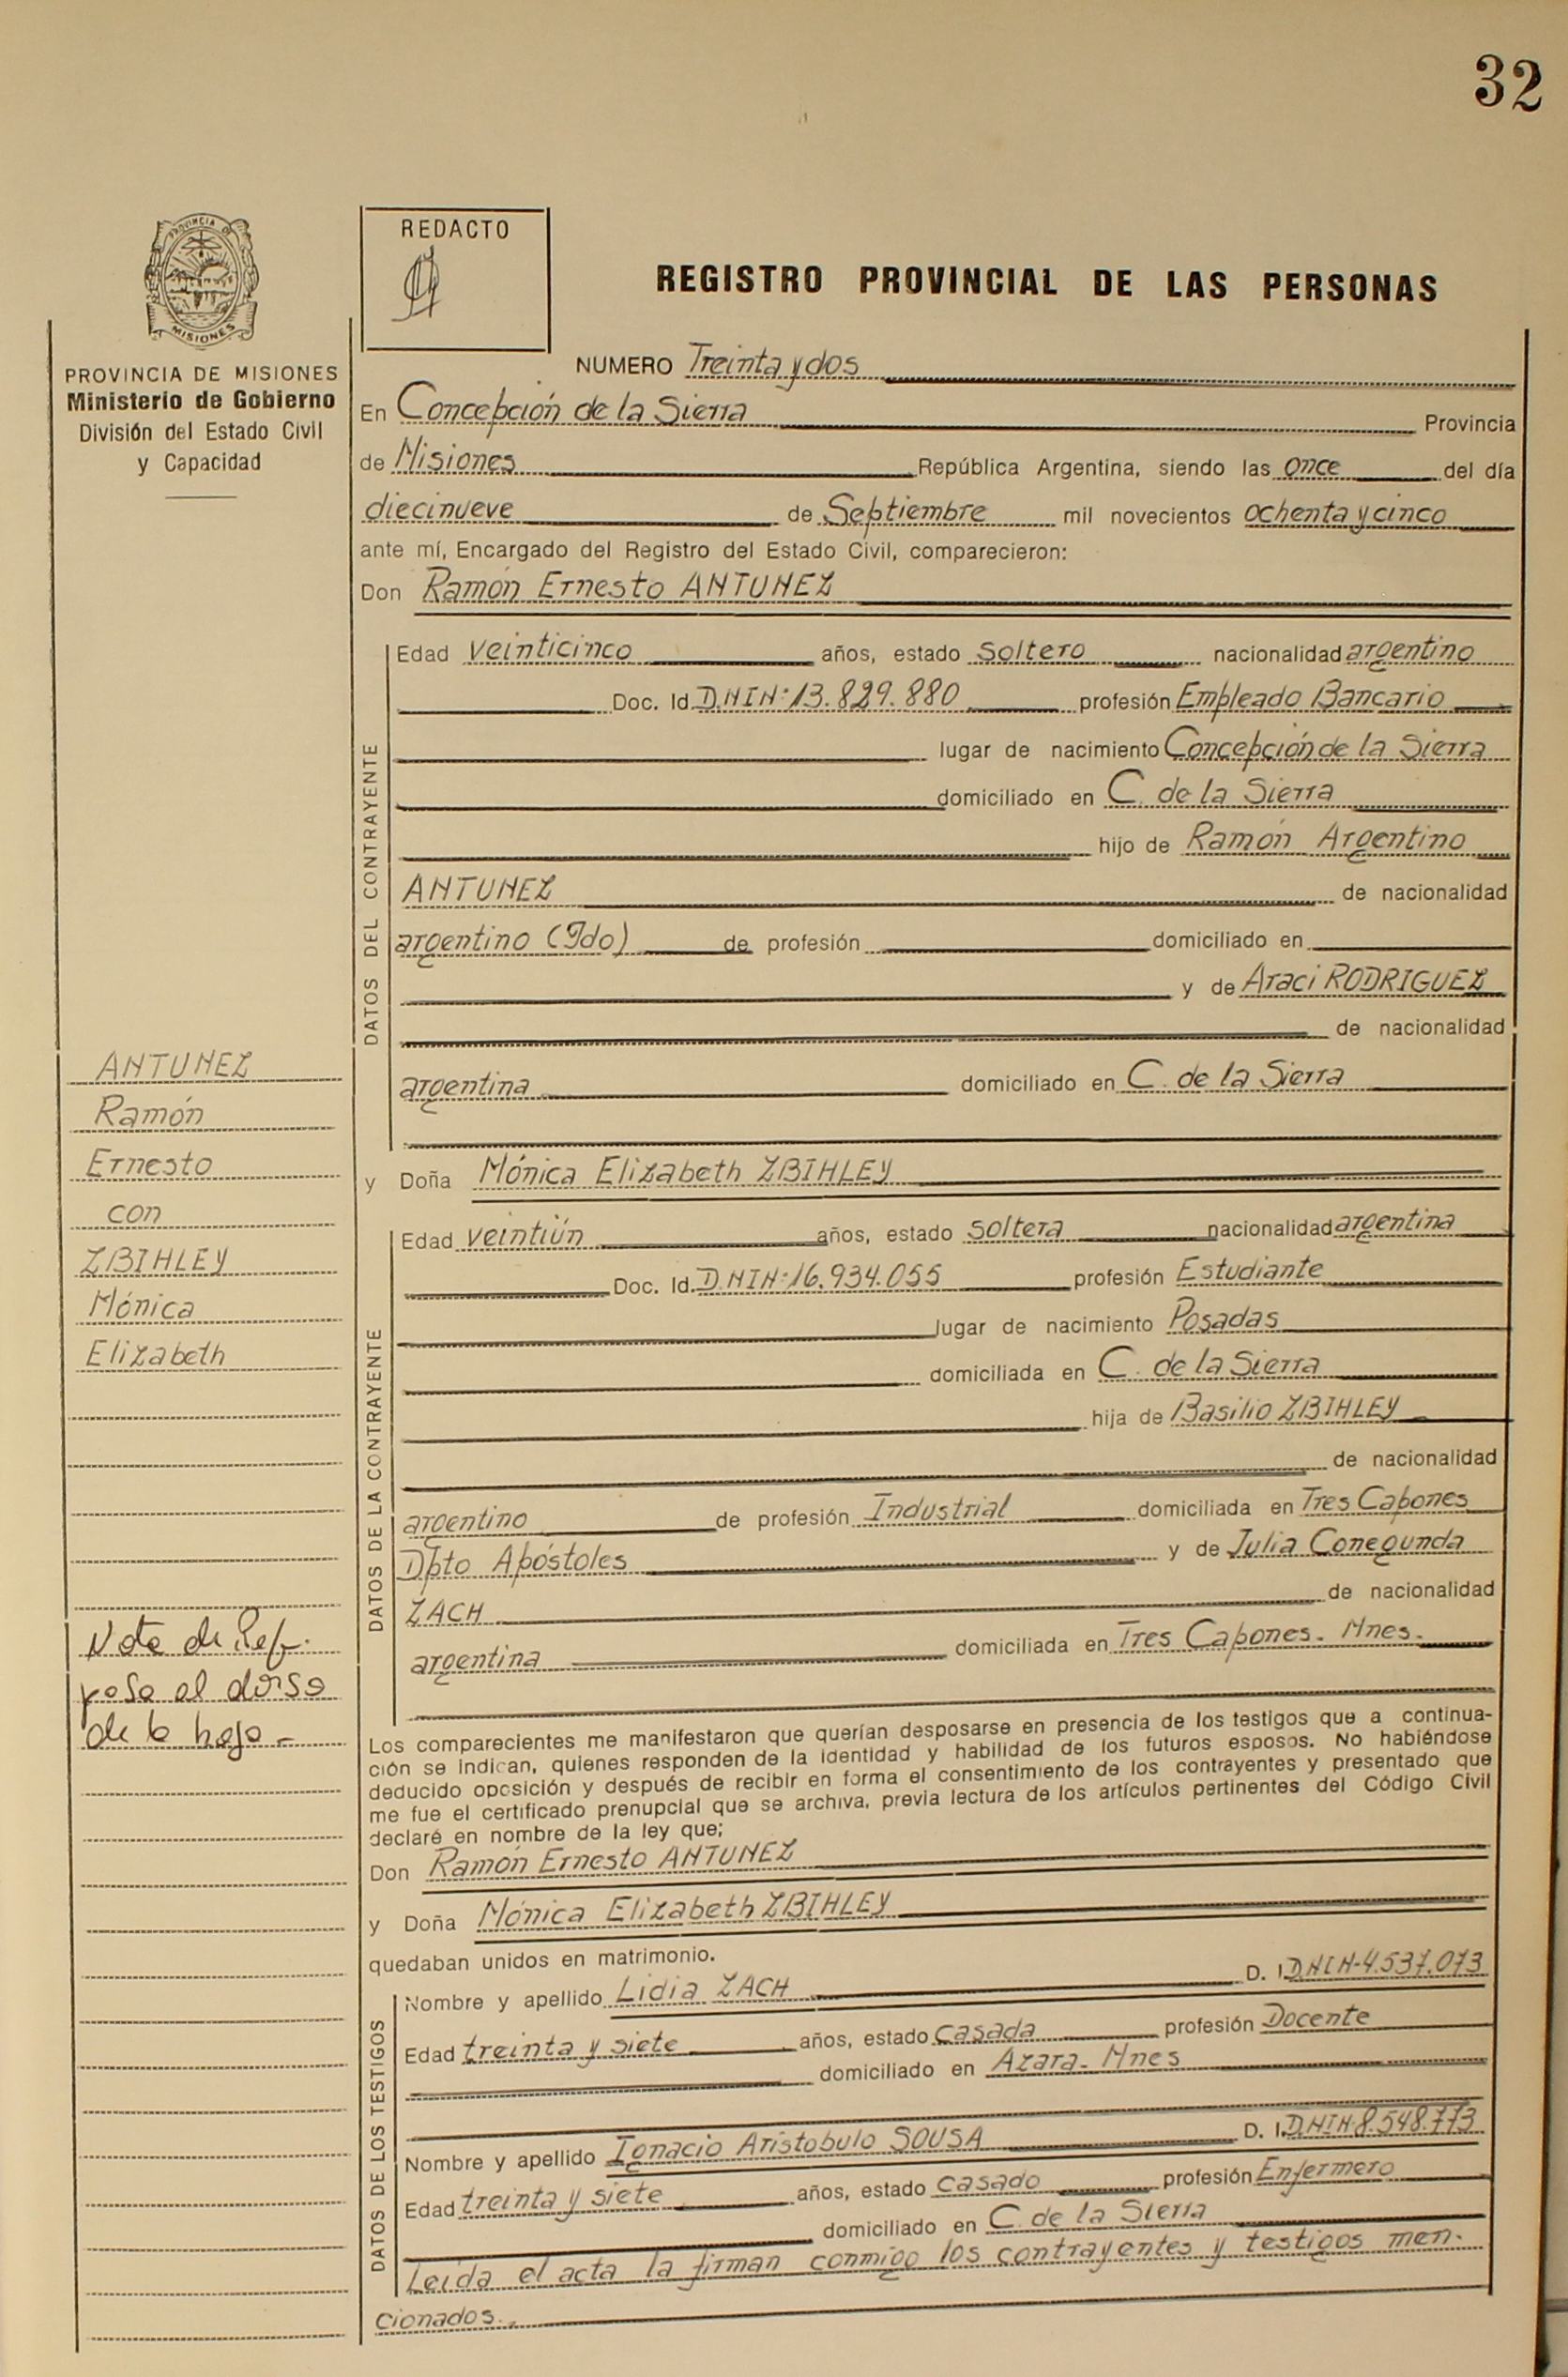 32
PROVINCIA DE
MISIONES
PROVINCIA DE MISIONES
Ministerio de Gobierno
División del Estado Civil
y Capacidad
REDACTO
REGISTRO PROVINCIAL DE LAS PERSONAS
NUMERO Treinta y dos
En Concepción de la Sierra Provincia
de Misiones República Argentina, siendo las once del día
diecinueve de Septiembre mil novecientos ochenta y cinco
ante mí, Encargado del Registro del Estado Civil, comparecieron:
Don Ramón Ernesto ANTUNEZ
DATOS DEL CONTRAYENTE
Edad veinticinco años, estado soltero nacionalidad argentino
Doc. Id. D.N.I.Nº 13.829.880 profesión Empleado Bancario
lugar de nacimiento Concepción de la Sierra
domiciliado en C. de la Sierra
hijo de Ramón Argentino
ANTUNEZ de nacionalidad
argentino (Fdo) de profesión domiciliado en
y de Araci RODRIGUEZ
de nacionalidad
argentina domiciliado en C. de la Sierra
ANTUNEZ
Ramón
Ernesto
con
ZBIHLEY
Mónica
Elizabeth
y Doña Mónica Elizabeth ZBIHLEY
DATOS DE LA CONTRAYENTE
Edad veintiún años, estado soltera nacionalidad argentina
Doc. Id. D.N.I.Nº 16.934.055 profesión Estudiante
lugar de nacimiento Posadas
domiciliada en C. de la Sierra
hija de Basilio ZBIHLEY
de nacionalidad
argentino de profesión Industrial domiciliada en Tres Capones
Dpto Apóstoles y de Julia Conegunda
ZACH de nacionalidad
argentina domiciliada en Tres Capones. Mnes.
Nota de Ref.
pasa al dorso
de la hoja -
Los comparecientes me manifestaron que querían desposarse en presencia de los testigos que a continua-
ción se indican, quienes responden de la identidad y habilidad de los futuros esposos. No habiéndose
deducido oposición y después de recibir en forma el consentimiento de los contrayentes y presentado que
me fue el certificado prenupcial que se archiva, previa lectura de los artículos pertinentes del Código Civil
declaré en nombre de la ley que;
Don Ramón Ernesto ANTUNEZ
y Doña Mónica Elizabeth ZBIHLEY
quedaban unidos en matrimonio.
DATOS DE LOS TESTIGOS
Nombre y apellido Lidia ZACH D. I. D.N.I.N-4.537.073
Edad treinta y siete años, estado casada profesión Docente
domiciliado en Azara. Mnes
Nombre y apellido Ignacio Aristobulo SOUSA D. I. D.N.I.N-8.548.773
Edad treinta y siete años, estado casado profesión Enfermero
domiciliado en C. de la Sierra
Leída el acta la firman conmigo los contrayentes y testigos men-
cionados.